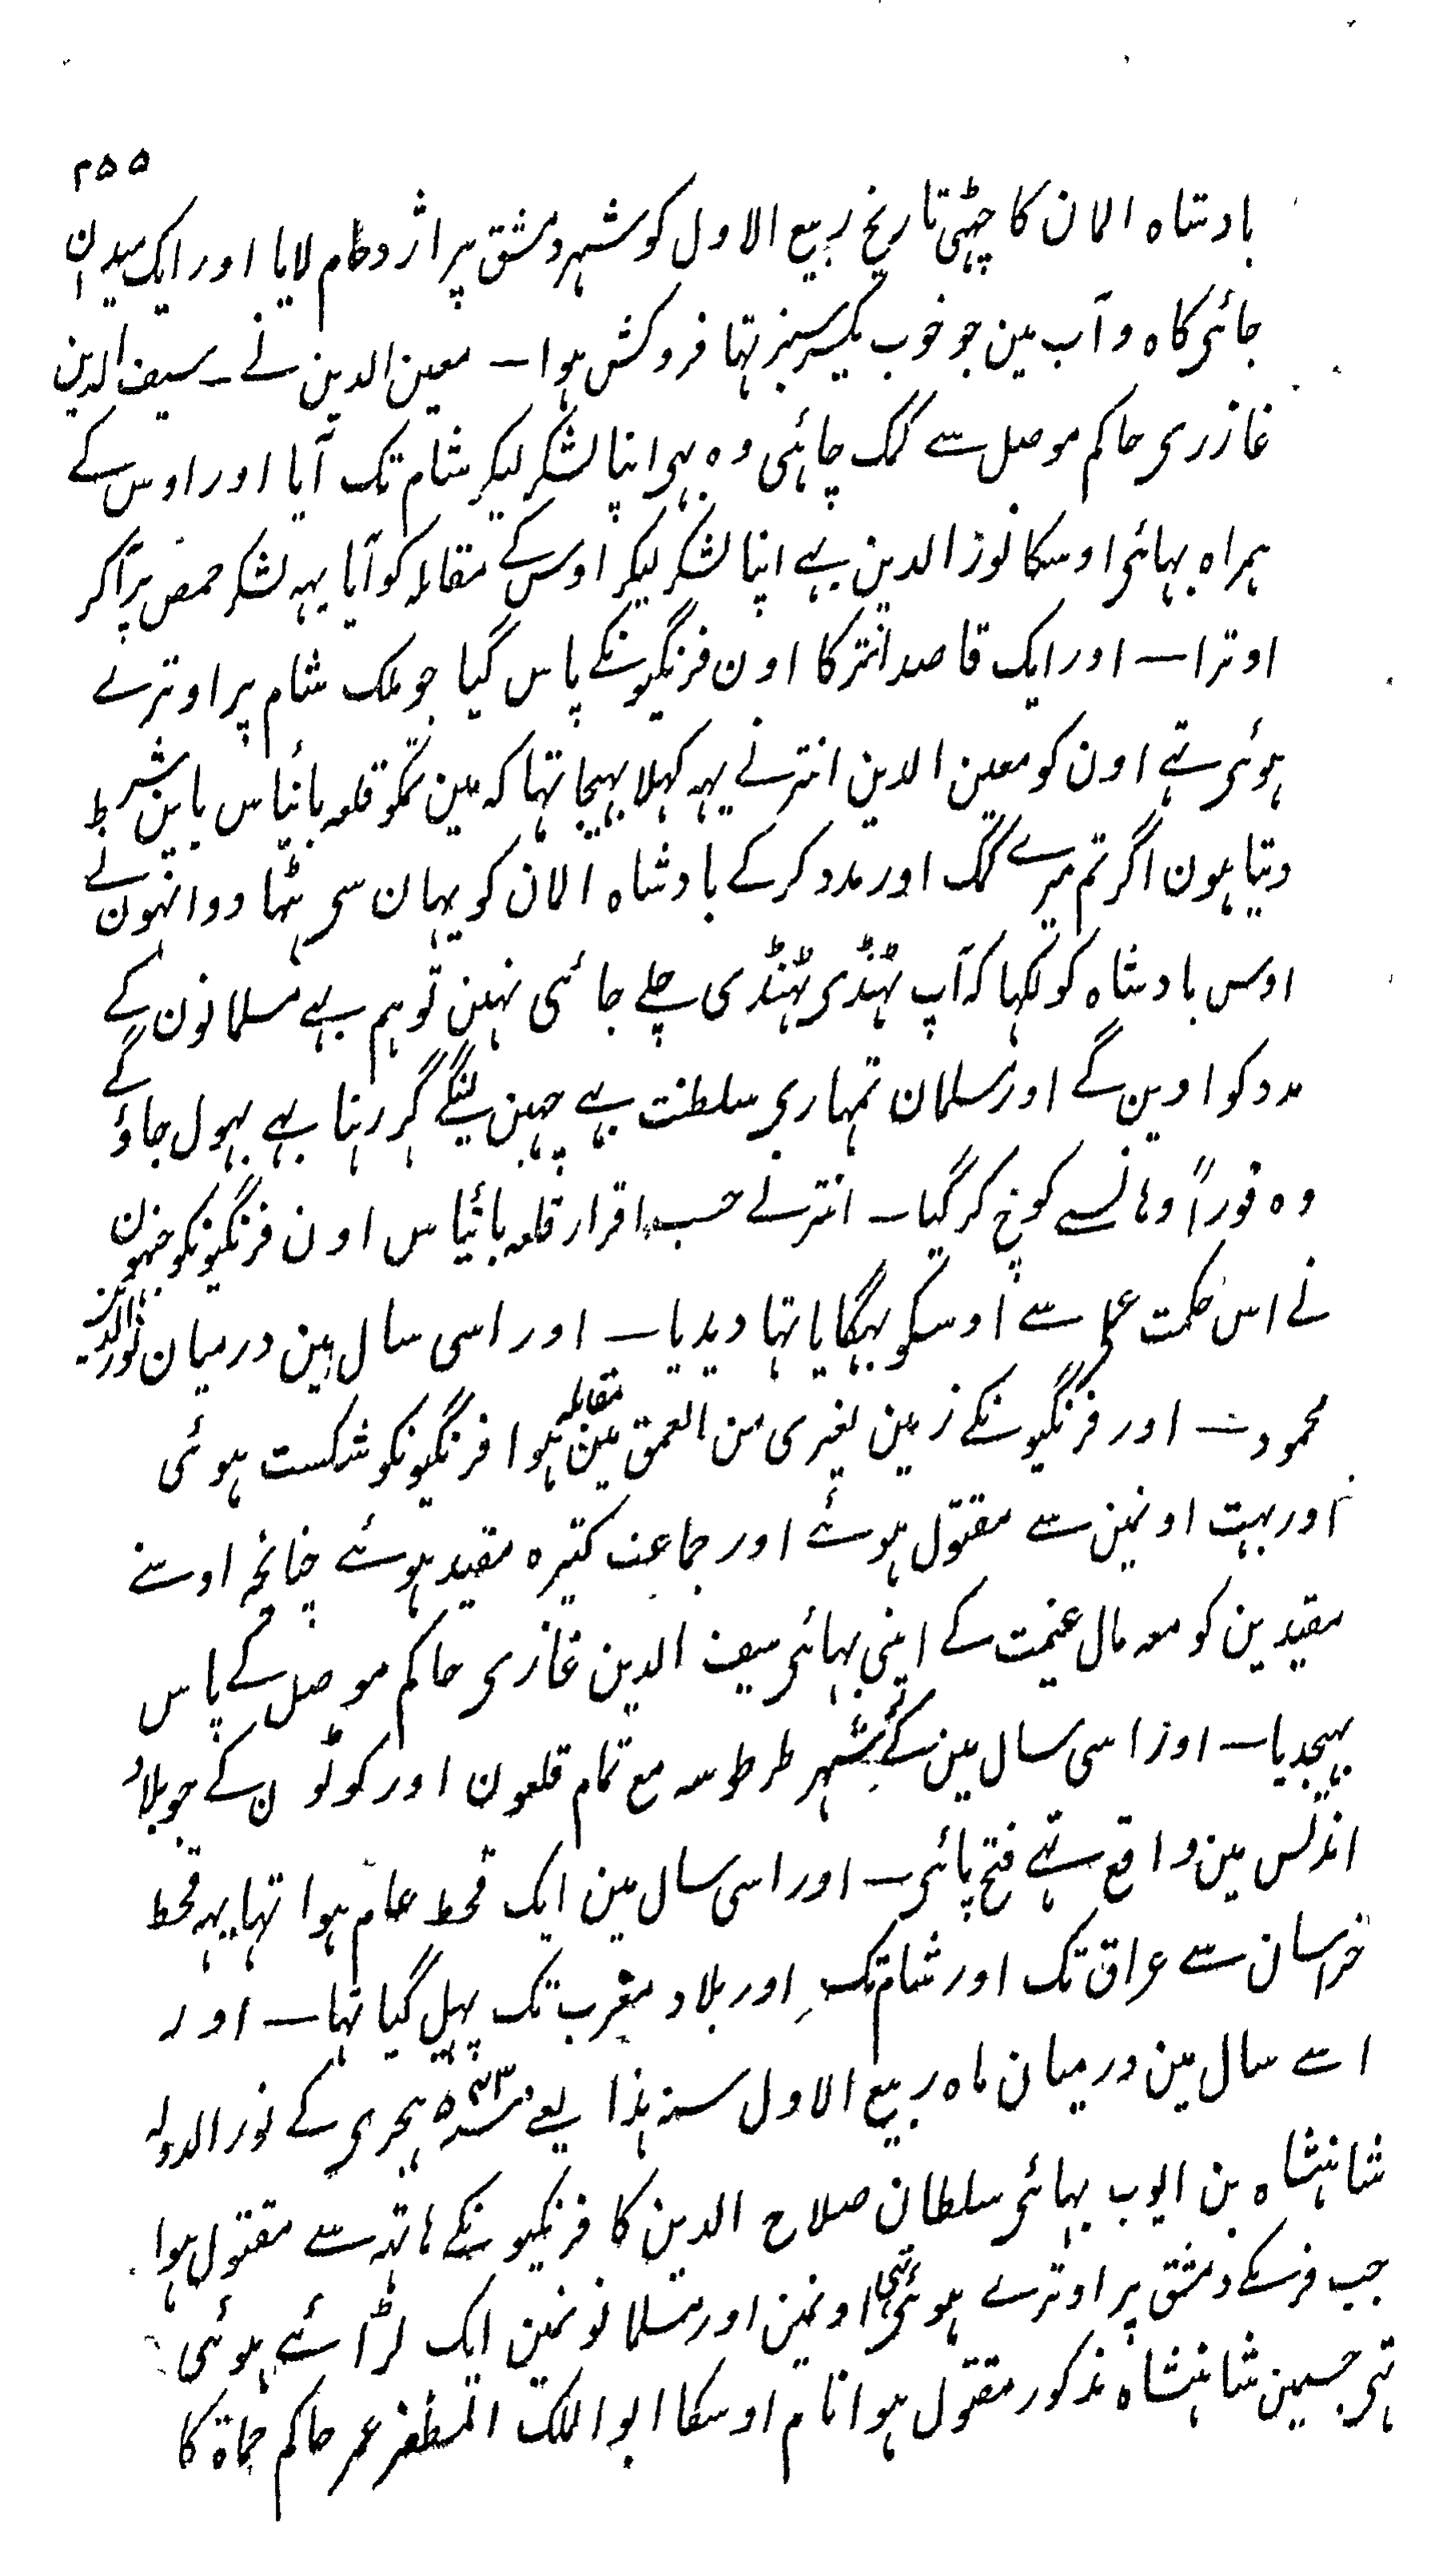 ۲۵۵
بادشاہ المان کا چہٹی تاریخ ربیع الاول کو شہر دمشق پر اژدحام لایا اور ایک میدان
جائی کاہ و آب مین جو خوب یکسرسبز تہا فروکش ہوا ـ معین الدین نے ـ سیف الدین
غازری حاکم موصل سے کمک چاہئی وہ بہی اپنا لشکر لیکر شام تک آیا اور اوس کے
ہمراہ بہائی اوسکا نور الدین بہے اپنا لشکر لیکر اوس کے مقابلہ کو آیا یہہ لشکر حمص پر آکر
اوترا ـ اور ایک قاصد انتر کا اون فرنگیونکے پاس گیا جو ملک شام پر اوترے
ہوئی تہے اون کو معین الدین انتر نے یہہ کہلا بہیجا تہا کہ مین تمکو قلعہ بانیاس باین شرط
دیتا ہون اگر تم میرے کمک اور مدد کر کے بادشاہ المان کو یہان سی ہٹہا دو انہون نے
اوس بادشاہ کو لکہا کہ آپ ٹہنڈی ٹہنڈی چلے جائی نہین تو ہم بہے مسلمانون کے
مدد کو اوین گے اور مسلمان تمہاری سلطنت بہے چہین لینگے گہر رہنا بہے بہول جاؤ گے
وہ فوراً وہانسے کوچ کر گیا ـ انتر نے حسب اقرار قلعہ بانیاس اون فرنگیونکو جنہون
نے اس حکمت عملی سے اوسکو بہگایا تہا دیدیا ـ اور اسی سال مین درمیان نور الدین
محمود ـ اور فرنگیونکے زمین یغری من العمق مین مقابلہ ہوا فرنگیونکو شکست ہوئی
اور بہت اونمین سے مقتول ہوئے اور جماعت کثیرہ مقید ہوئے چنانچہ اوسنے
مقیدین کو معہ مال غنیمت کے اپنی بہائی سیف الدین غازری حاکم موصل کے پاس
بہیجدیا ـ اور اسی سال مین کے شہر طرطوسہ مع تمام قلعون اور کوٹون کے جو بلاد
اندلس مین واقع تہے فتح پائی ـ اور اسی سال مین ایک قحط عام ہوا تہا یہہ قحط
خراسان سے عراق تک اور شام تک اور بلاد مغرب تک پہیل گیا تہا ـ اور
اسے سال مین درمیان ماہ ربیع الاول سنہ ہذا یعے سنہ ۵۴۳ ہجری کے نور الدولہ
شاہنشاہ بن ایوب بہائی سلطان صلاح الدین کا فرنگیونکے ہاتہ سے مقتول ہوا
جب فرنگے دمشق پر اوترے ہوئی تہی اونمین اور مسلمانونمین ایک لڑائے ہوئی
تہی جسمین شاہنشاہ مذکور مقتول ہوا نام اوسکا ابو الملک المظفر عمر حاکم حماۃ کا